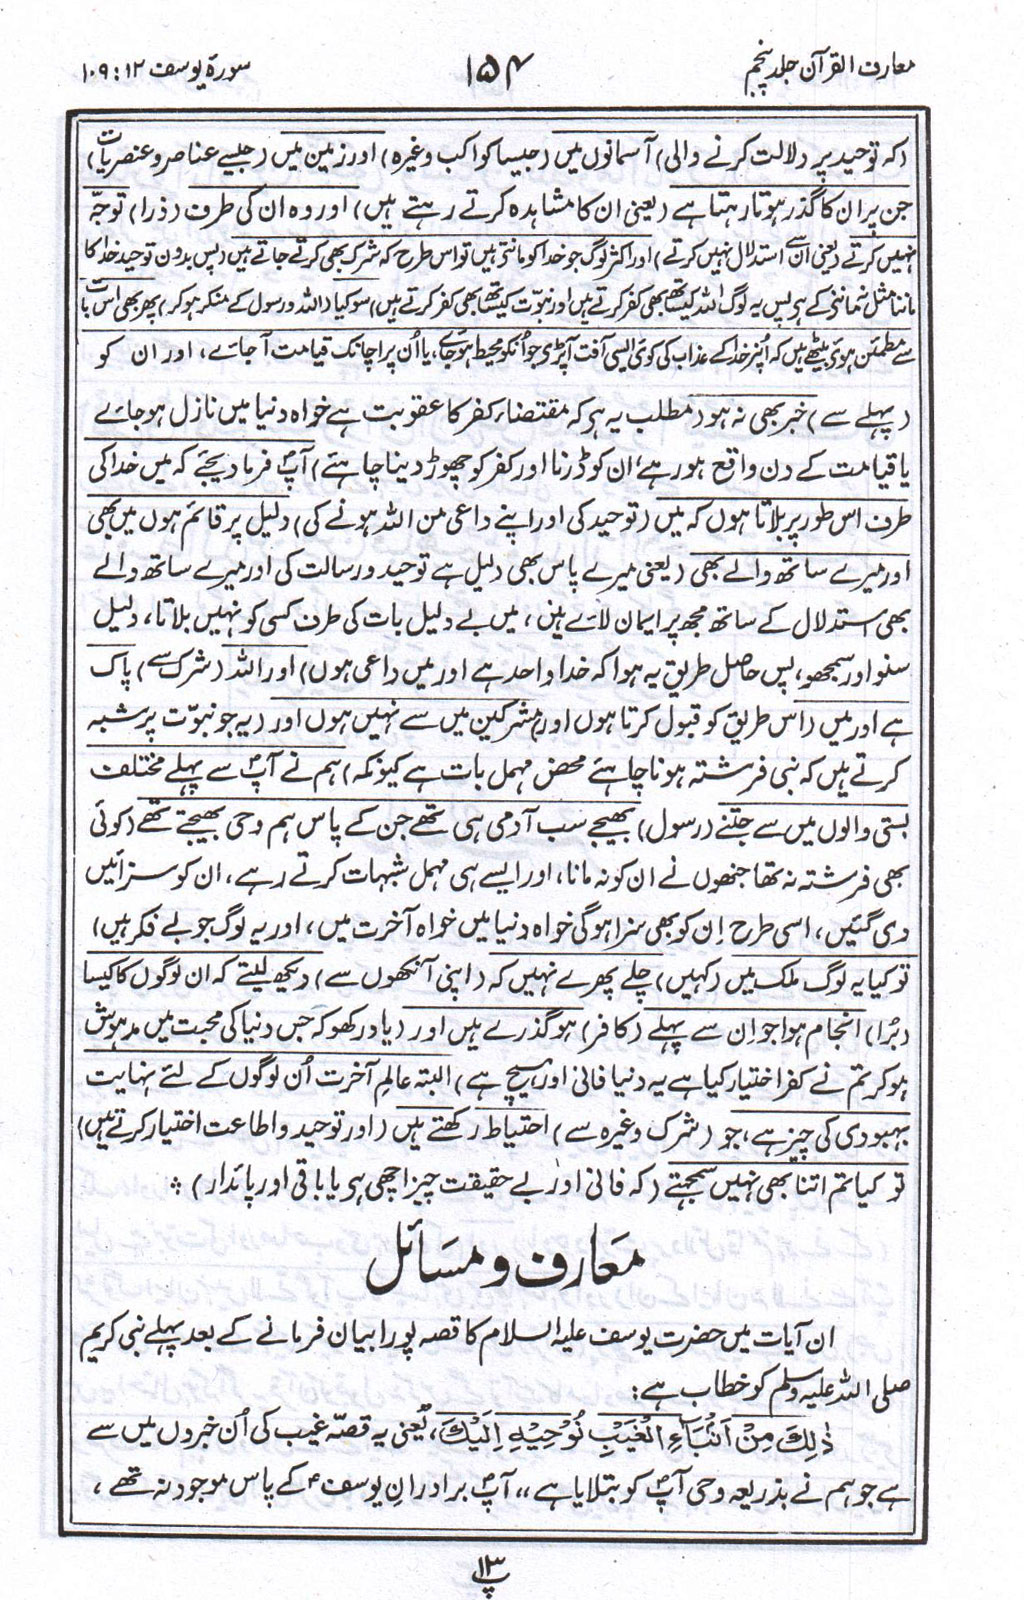 معارف القرآن جلد پنجم
۱۵۴
سورۂ یوسف ۱۲ : ۱۰۹
(کہ توحید پر دلالت کرنے والی) آسمانوں میں (جیسا کواکب وغیرہ) اور زمین میں (جیسے عناصر و عنصریات)
جن پر ان کا گذر ہوتا رہتا ہے (یعنی ان کا مشاہدہ کرتے رہتے ہیں) اور وہ ان کی طرف (ذرا) توجہ
نہیں کرتے (یعنی ان سے استدلال نہیں کرتے) اور اکثر لوگ جو خدا کو مانتی ہیں تو اس طرح کہ شرک بھی کرتے جاتے ہیں (پس بدون توحید خدا کا
ماننا مثل نہ ماننے کے ہی پس یہ لوگ اللہ کیساتھ بھی کفر کرتے ہیں اور نبوت کیساتھ بھی کفر کرتے ہیں) سو کیا (اللہ و رسول کے منکر ہو کر) پھر بھی اس بات
سے مطمئن ہوئی بیٹھے ہیں کہ اُن پر خدا کے عذاب کی کوئی ایسی آفت آپڑی جو اُنکو محیط ہو جائے، یا اُن پر اچانک قیامت آجائے، اور ان کو
(پہلے سے) خبر بھی نہ ہو (مطلب یہ ہی کہ مقتضاء کفر کا عقوبت ہے خواہ دنیا میں نازل ہو جائے
یا قیامت کے دن واقع ہو رہے، ان کو ڈرنا اور کفر کو چھوڑ دینا چاہئے) آپؐ فرما دیجئے کہ میں خدا کی
طرف اس طور پر بلاتا ہوں کہ میں (توحید کی اور اپنے داعی من اللہ ہونے کی) دلیل پر قائم ہوں میں بھی
اور میرے ساتھ والے بھی (یعنی میرے پاس بھی دلیل ہے توحید و رسالت کی اور میرے ساتھ والے
بھی استدلال کے ساتھ مجھ پر ایمان لائے ہیں، میں بے دلیل بات کی طرف کسی کو نہیں بلاتا، دلیل
سنو اور سمجھو، پس حاصل طریق یہ ہوا کہ خدا واحد ہے اور میں داعی ہوں) اور اللہ (شرک سے) پاک
ہے اور میں (اس طریق کو قبول کرتا ہوں اور) مشرکین میں سے نہیں ہوں اور (یہ جو نبوت پر شبہ
کرتے ہیں کہ نبی فرشتہ ہونا چاہئے محض مہمل بات ہے کیونکہ) ہم نے آپؐ سے پہلے مختلف
بستی والوں میں سے جتنے (رسول) بھیجے سب آدمی ہی تھے جن کے پاس ہم وحی بھیجتے تھے (کوئی
بھی فرشتہ نہ تھا جنھوں نے ان کو نہ مانا، اور ایسے ہی مہمل شبہات کرتے رہے، ان کو سزائیں
دی گئیں، اسی طرح اِن کو بھی سزا ہوگی خواہ دنیا میں خواہ آخرت میں، اور یہ لوگ جو بے فکر ہیں)
تو کیا یہ لوگ ملک میں (کہیں) چلے پھرے نہیں کہ (اپنی آنکھوں سے) دیکھ لیتے کہ ان لوگوں کا کیسا
(بُرا) انجام ہوا جو اِن سے پہلے (کافر) ہو گذرے ہیں اور (یاد رکھو کہ جس دنیا کی محبت میں مدہوش
ہو کر تم نے کفر اختیار کیا ہے یہ دنیا فانی اور ہیچ ہے) البتہ عالمِ آخرت اُن لوگوں کے لئے نہایت
بہبودی کی چیز ہے، جو (شرک وغیرہ سے) احتیاط رکھتے ہیں (اور توحید و اطاعت اختیار کرتے ہیں)
تو کیا تم اتنا بھی نہیں سمجھتے (کہ فانی اور بے حقیقت چیز اچھی ہی یا باقی اور پائدار) ؞
معارف و مسائل
ان آیات میں حضرت یوسف علیہ السلام کا قصہ پورا بیان فرمانے کے بعد پہلے نبی کریم
صلی اللہ علیہ وسلم کو خطاب ہے:
ذٰلِكَ مِنْ اَنْۢبَآءِ الْغَيْبِ نُوْحِيْهِ اِلَيْكَ، یعنی یہ قصہ غیب کی اُن خبروں میں سے
ہے جو ہم نے بذریعہ وحی آپؐ کو بتلایا ہے،، آپؐ برادرانِ یوسفؑ کے پاس موجود نہ تھے،
پ۱۳